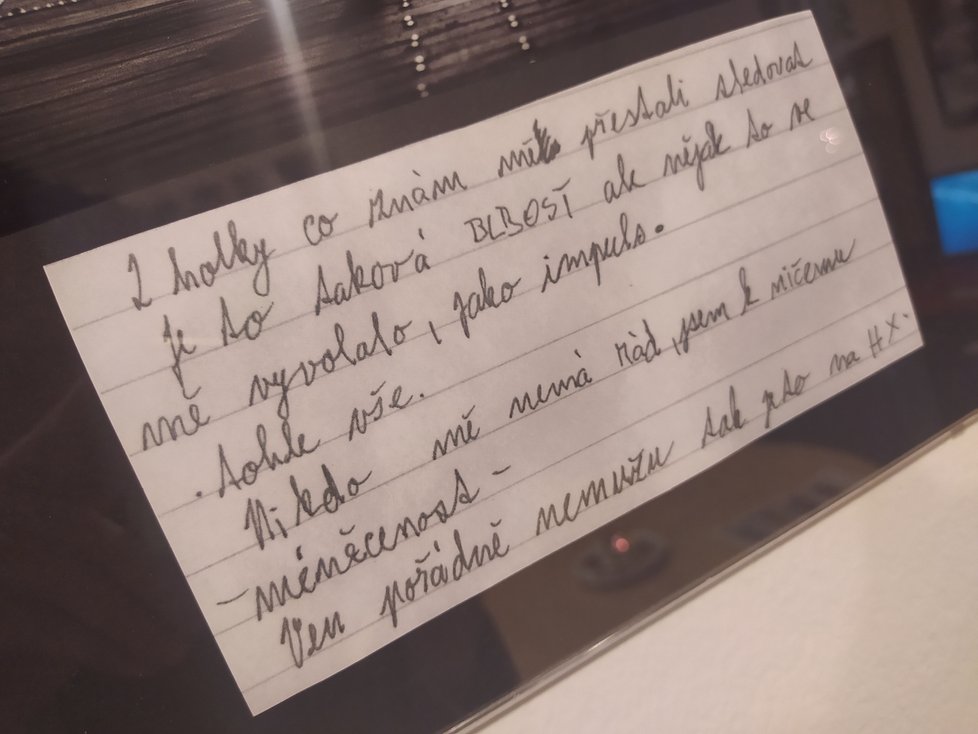 2 holky co znám mě přestali sledovat
je to taková BLBOST ale nějak to ve
mně vyvolalo, jako impuls.
. tohle vše.
Nikdo mě nemá rád, jsem k ničemu
- méněcenost -
Ven pořádně nemužu tak je to na HX.